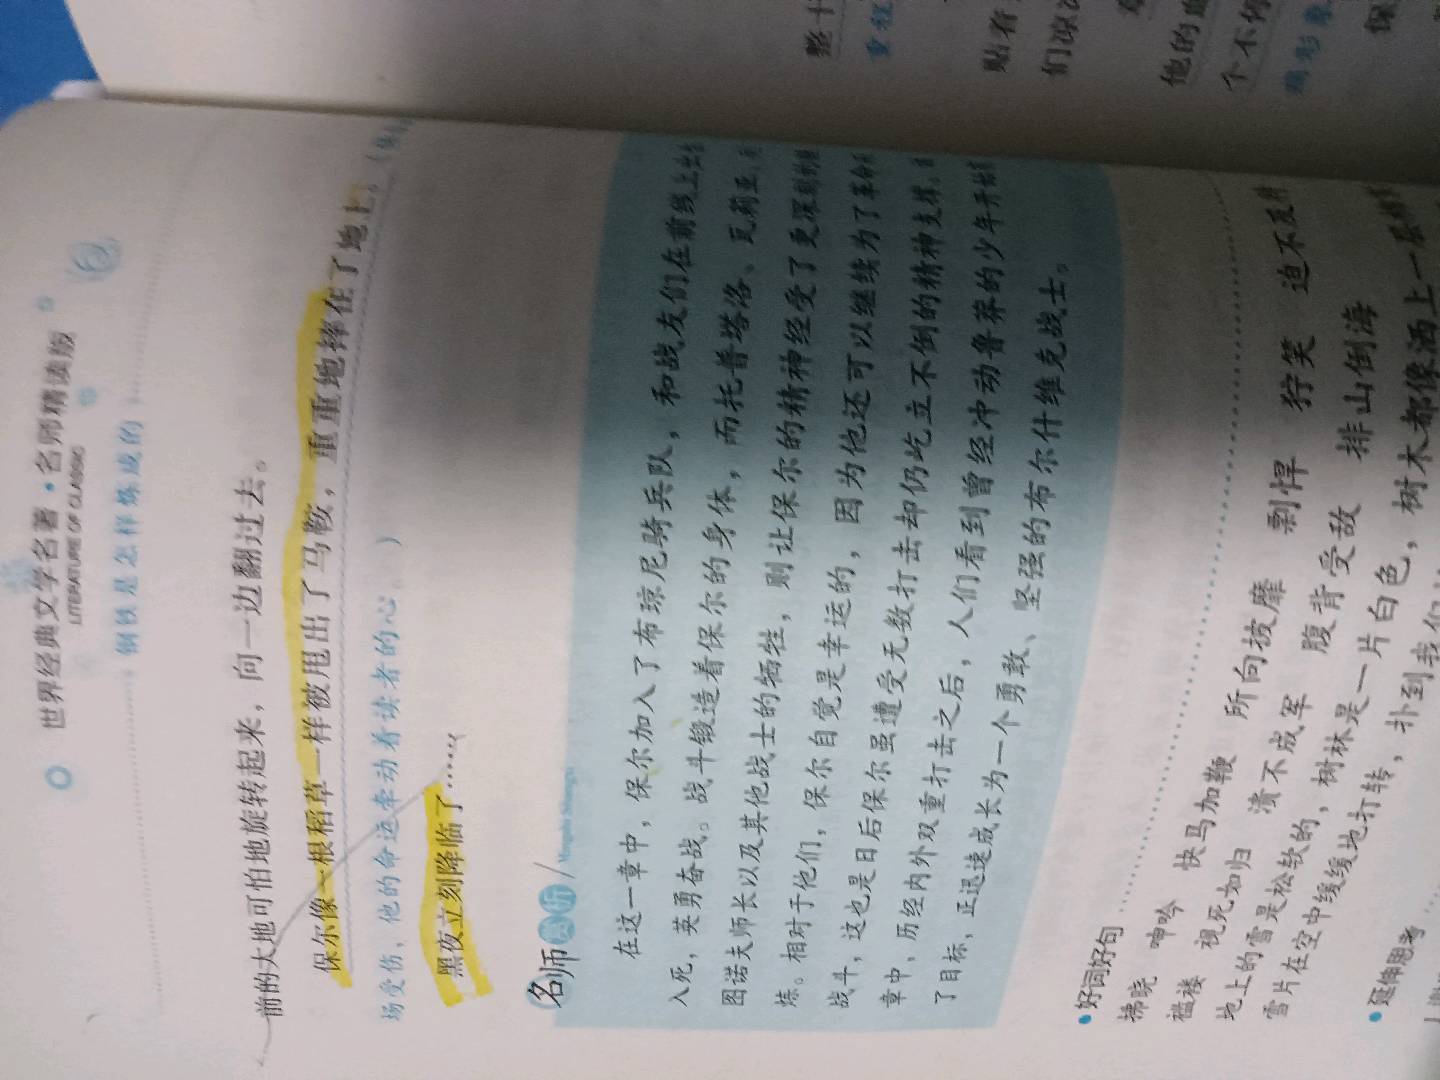 世界经典文学名著·名师精读版
LITERATURE OF CLASSIC
钢铁是怎样炼成的
前的大地可怕地旋转起来，向一边翻过去。
保尔像一根稻草一样被甩出了马鞍，重重地摔在了地上。（
场受伤，他的命运牵动着读者的心。）
黑夜立刻降临了……
名师赏析
在这一章中，保尔加入了布琼尼骑兵队，和战友们在前线上出生
入死，英勇奋战。战斗锻造着保尔的身体，而托普塔洛、瓦莉亚、
图诺夫师长以及其他战士的牺牲，则让保尔的精神经受了更深刻的锤
炼。相对于他们，保尔自觉是幸运的，因为他还可以继续为了革命
战斗，这也是日后保尔虽遭受无数打击却仍屹立不倒的精神支撑。
章中，历经内外双重打击之后，人们看到曾经冲动鲁莽的少年开始
了目标，正迅速成长为一个勇敢、坚强的布尔什维克战士。
•好词好句
拂晓 呻吟 快马加鞭 所向披靡 剽悍 狞笑 迫不及待
褴褛 视死如归 溃不成军 腹背受敌 排山倒海
地上的雪是松软的，树林是一片白色，树木都像洒上一层
雪片在空中缓缓地打转，扑到我们
•延伸思考
整十
重程
贴着
们凉
他的
个不停
保